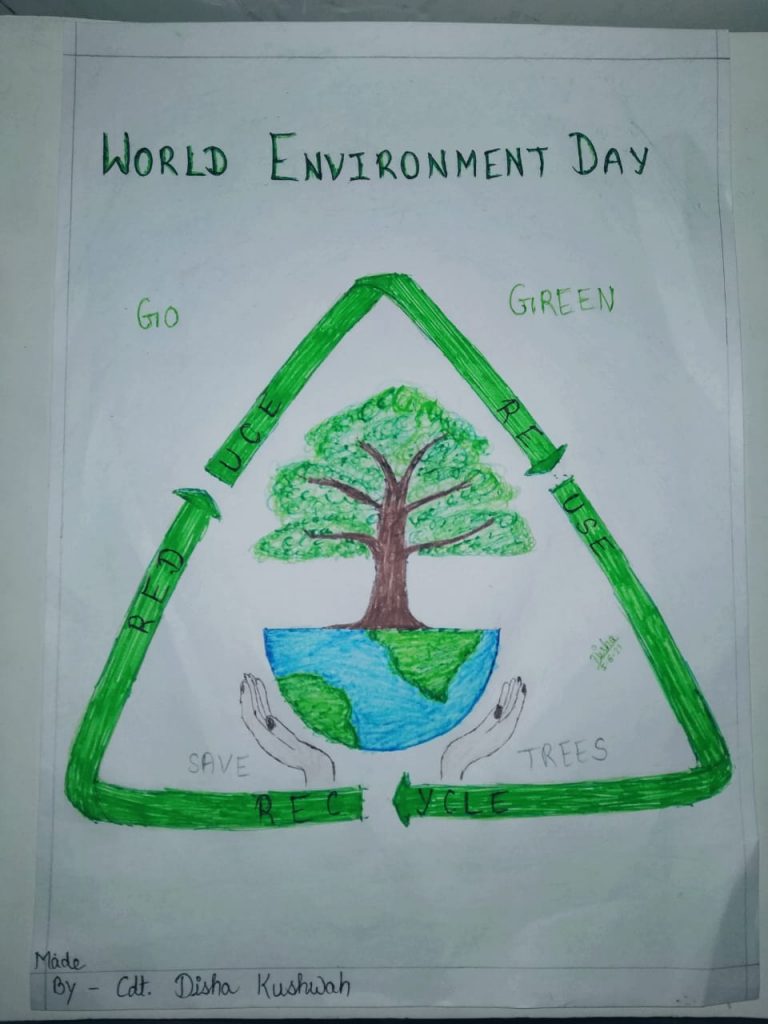 WORLD ENVIRONMENT DAY
GO GREEN
REDUCE
REUSE
Disha
SAVE TREES
RECYCLE
Made
By - Cdt. Disha Kushwah